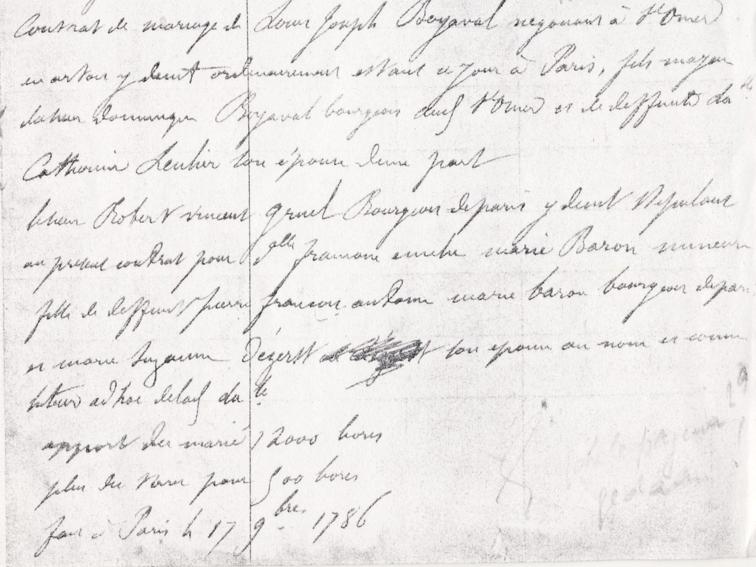 Contrat de mariage de Louis Joseph Boyaval negotiant à St Omer
en artois y demt ordinairement estant ce jour à Paris, fils majeur
de Dominique Boyaval bourgeois dud St Omer et de deffunte da
Catherine son épouse d'une part
Robert vincent gruel Bourgeois de paris y demt stipulant
au présent contrat pour dlle francoise emelie marie Baron mineure
fille de deffunt pierre francois marie baron bourgeois de paris
et marie Suzanne son epouse au nom et comme
tuteur ad hoc de lad dlle
apport du marié 12000 livres
plus du pour 500 livres
fait à Paris le 17 9bres 1786